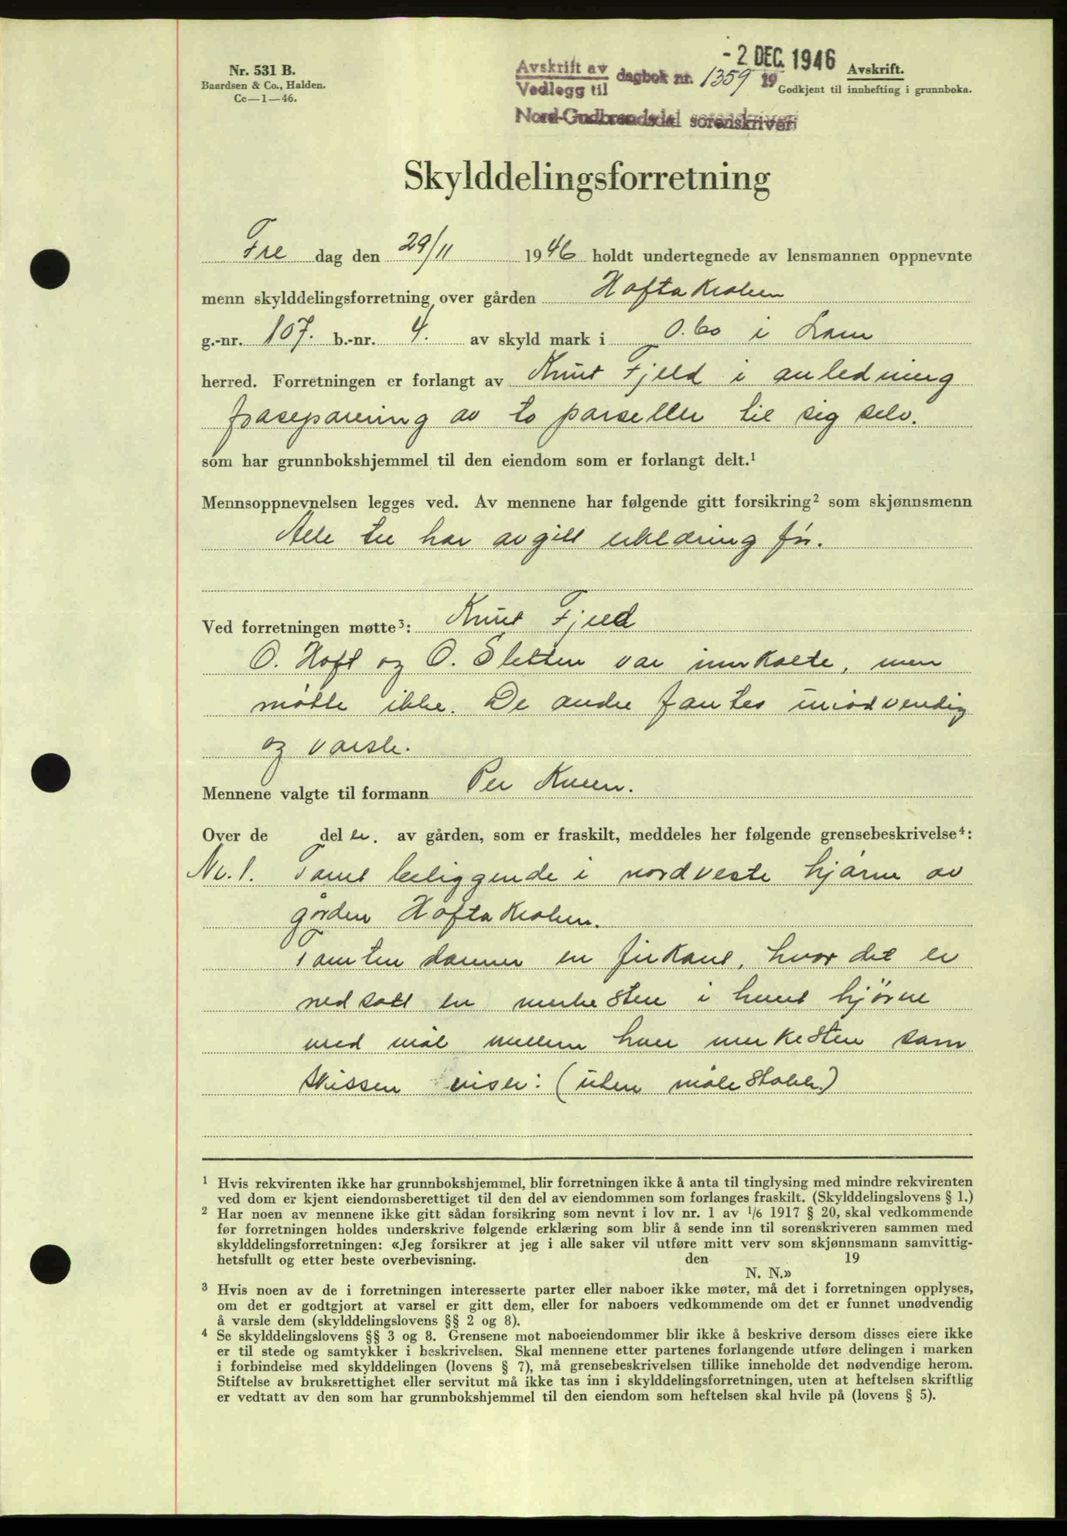 Nr. 531 B.
Baardsen & Co., Halden.
Cc—1—46.
- 2 DEC. 1946
Avskrift av
Vedlegg til dagbok nr. 1359 19
Nord-Gudbrandsdal sorenskriveri
Avskrift.
Godkjent til innhefting i grunnboka.
Skylddelingsforretning
Fre dag den 29/11 1946 holdt undertegnede av lensmannen oppnevnte
menn skylddelingsforretning over gården Hoftakraken
g.-nr. 107. b.-nr. 4. av skyld mark i 0.60 i Lom
herred. Forretningen er forlangt av Knut Fjeld i anledning
fraseparering av to parseller til sig selv.
som har grunnbokshjemmel til den eiendom som er forlangt delt.¹
Mennsoppnevnelsen legges ved. Av mennene har følgende gitt forsikring² som skjønnsmenn
Alle tre har avgitt erklæring før.
Ved forretningen møtte³: Knut Fjeld
O. Hoft og O. Sletten var innkalte, men
møtte ikke. De andre fantes unødvendig
og varsle.
Mennene valgte til formann Per Kveen.
Over de del er. av gården, som er fraskilt, meddeles her følgende grensebeskrivelse⁴:
Nr. 1. Tomt beliggende i nordveste hjørne av
gården Hoftakraken.
Tomten danner en firkant, hvor det er
nedsatt en merkesten i hvert hjørne
med mål mellem hver merkesten som
skissen viser: (uten målestokk.)
¹ Hvis rekvirenten ikke har grunnbokshjemmel, blir forretningen ikke å anta til tinglysing med mindre rekvirenten
ved dom er kjent eiendomsberettiget til den del av eiendommen som forlanges fraskilt. (Skylddelingslovens § 1.)
² Har noen av mennene ikke gitt sådan forsikring som nevnt i lov nr. 1 av 1/6 1917 § 20, skal vedkommende
før forretningen holdes underskrive følgende erklæring som blir å sende inn til sorenskriveren sammen med
skylddelingsforretningen: «Jeg forsikrer at jeg i alle saker vil utføre mitt verv som skjønnsmann samvittig-
hetsfullt og etter beste overbevisning. den 19
N. N.»
³ Hvis noen av de i forretningen interesserte parter eller naboer ikke møter, må det i forretningen opplyses,
om det er godtgjort at varsel er gitt dem, eller for naboers vedkommende om det er funnet unødvendig
å varsle dem (skylddelingslovens §§ 2 og 8).
⁴ Se skylddelingslovens §§ 3 og 8. Grensene mot naboeiendommer blir ikke å beskrive dersom disses eiere ikke
er til stede og samtykker i beskrivelsen. Skal mennene etter partenes forlangende utføre delingen i marken
i forbindelse med skylddelingen (lovens § 7), må grensebeskrivelsen tillike inneholde det nødvendige herom.
Stiftelse av bruksrettighet eller servitut må ikke tas inn i skylddelingsforretningen, uten at heftelsen skriftlig
er vedtatt av den som har grunnbokshjemmel til den eiendom som heftelsen skal hvile på (lovens § 5).